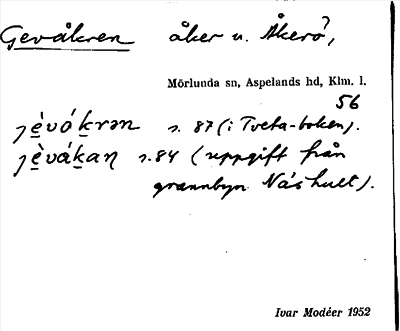 Gevåkren åker u. Åkerö?,
Mörlunda sn, Aspelands hd, Klm. l.
56
s. 87 (i Tveta-boken).
s. 84 (uppgift från
grannbyn Näshult).
Ivar Modéer 1952